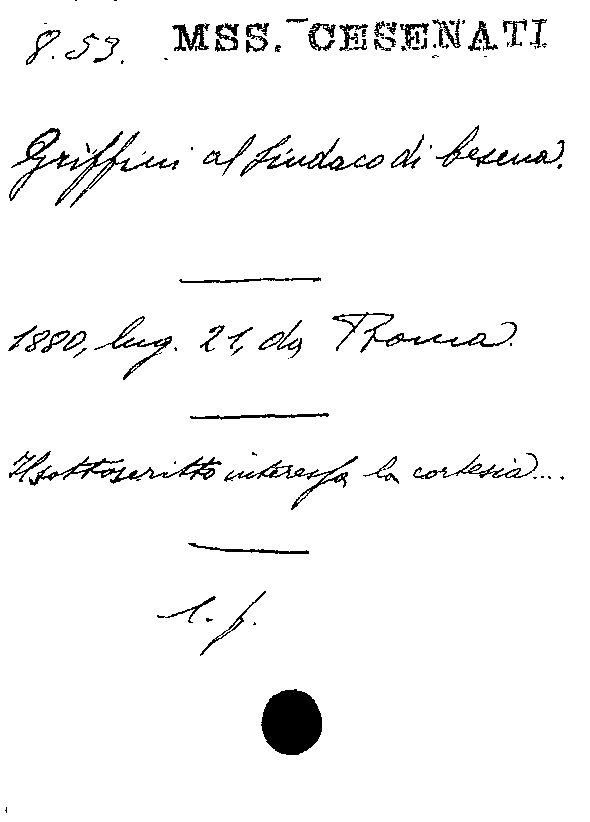 8.53. MSS. CESENATI
Griffini al Sindaco di Cesena.
1880, lug. 21, da Roma.
Il sottoscritto interessa la cortesia....
l. f.